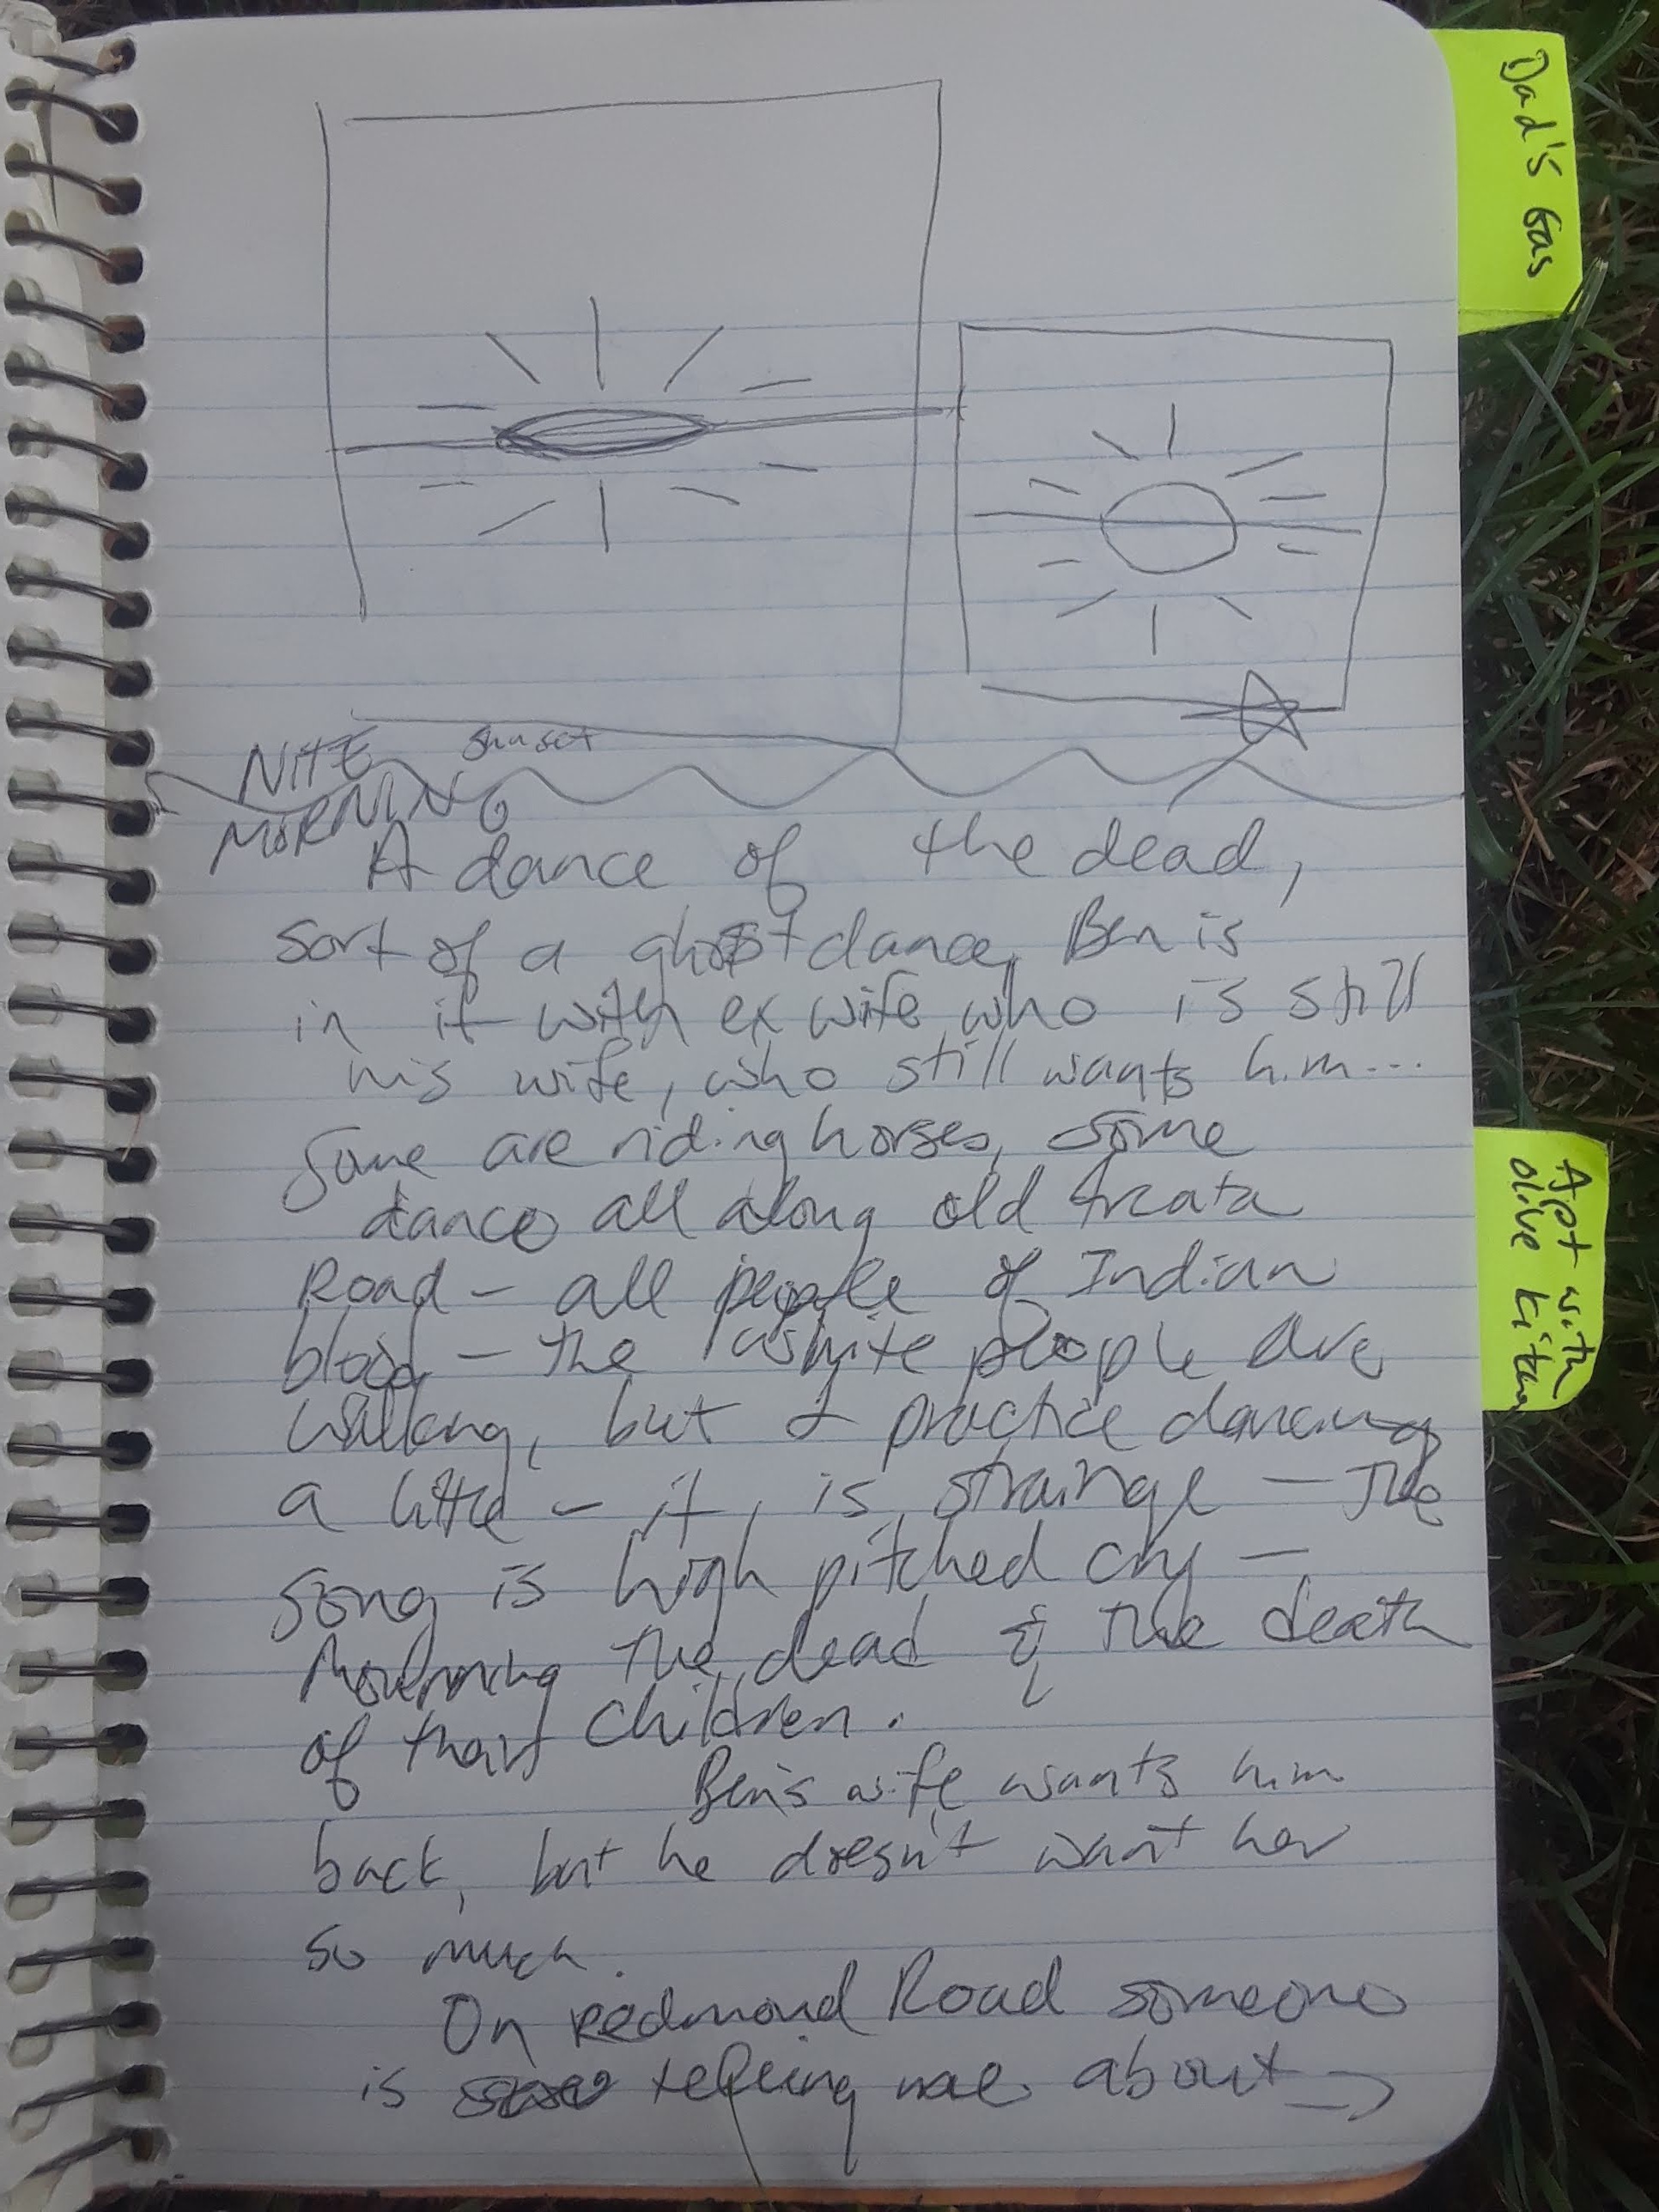 Dad's Gas
NITE sunset
MORNING
A dance of the dead,
sort of a ghost dance, Ben is
in it with ex wife who is still
his wife, who still wants him...
Some are riding horses, some
dance all along old Arcata
Road - all people of Indian
blood - the white people are
walking, but I practice dancing
a little - it is strainge - The
song is high pitched cry -
Mourning the dead & the death
of their children.
Ben's wife wants him
back, but he doesn't want her
so much.
On Redmond Road someone
is telling me about →
Apt with
olive kitchen